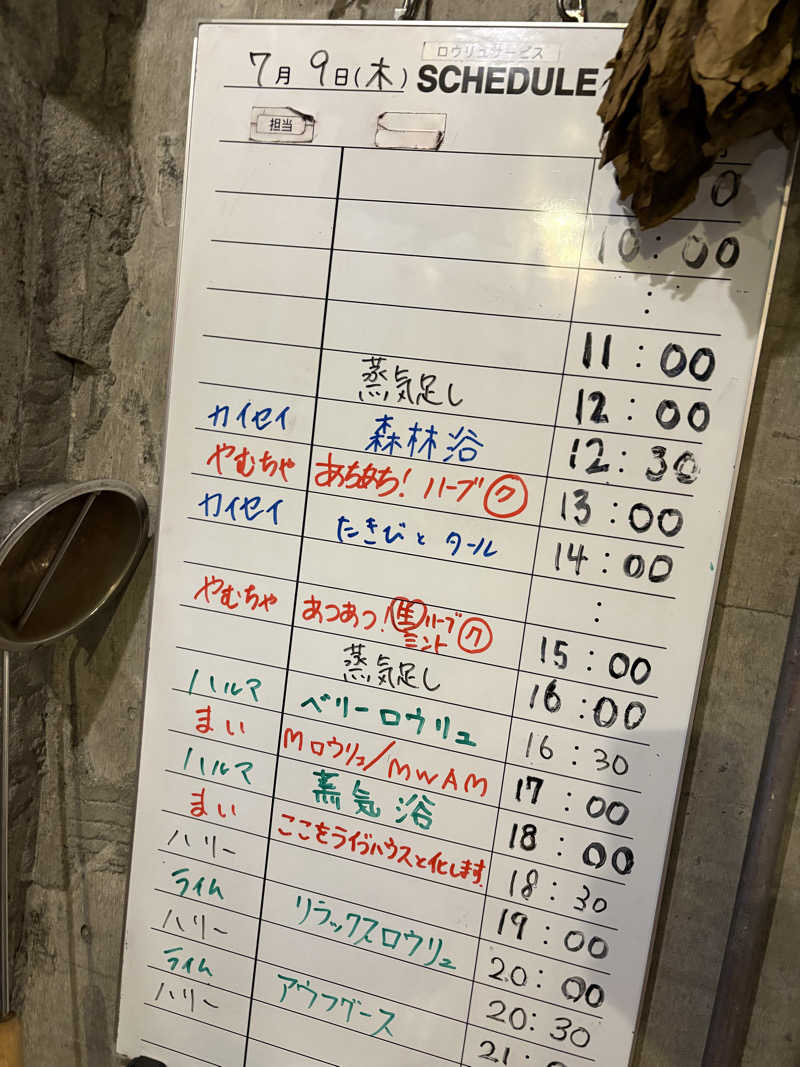 7月9日(木) ロウリュサービス SCHEDULE
担当
10:00
:
11:00
蒸気足し 12:00
カイセイ 森林浴 12:30
やむちゃ あちあち!ハーブ ク 13:00
カイセイ たきびとタール 14:00
:
やむちゃ あつあつ! ハーブミント ク 15:00
蒸気足し 16:00
ハルマ ベリーロウリュ 16:30
まい Mロウリュ/MWAM 17:00
ハルマ 蒸気浴 18:00
まい ここをライヴハウスと化します。 18:30
ハリー 19:00
ライム リラックスロウリュ 20:00
ハリー 20:30
ライム アウフグース 21:0
ハリー